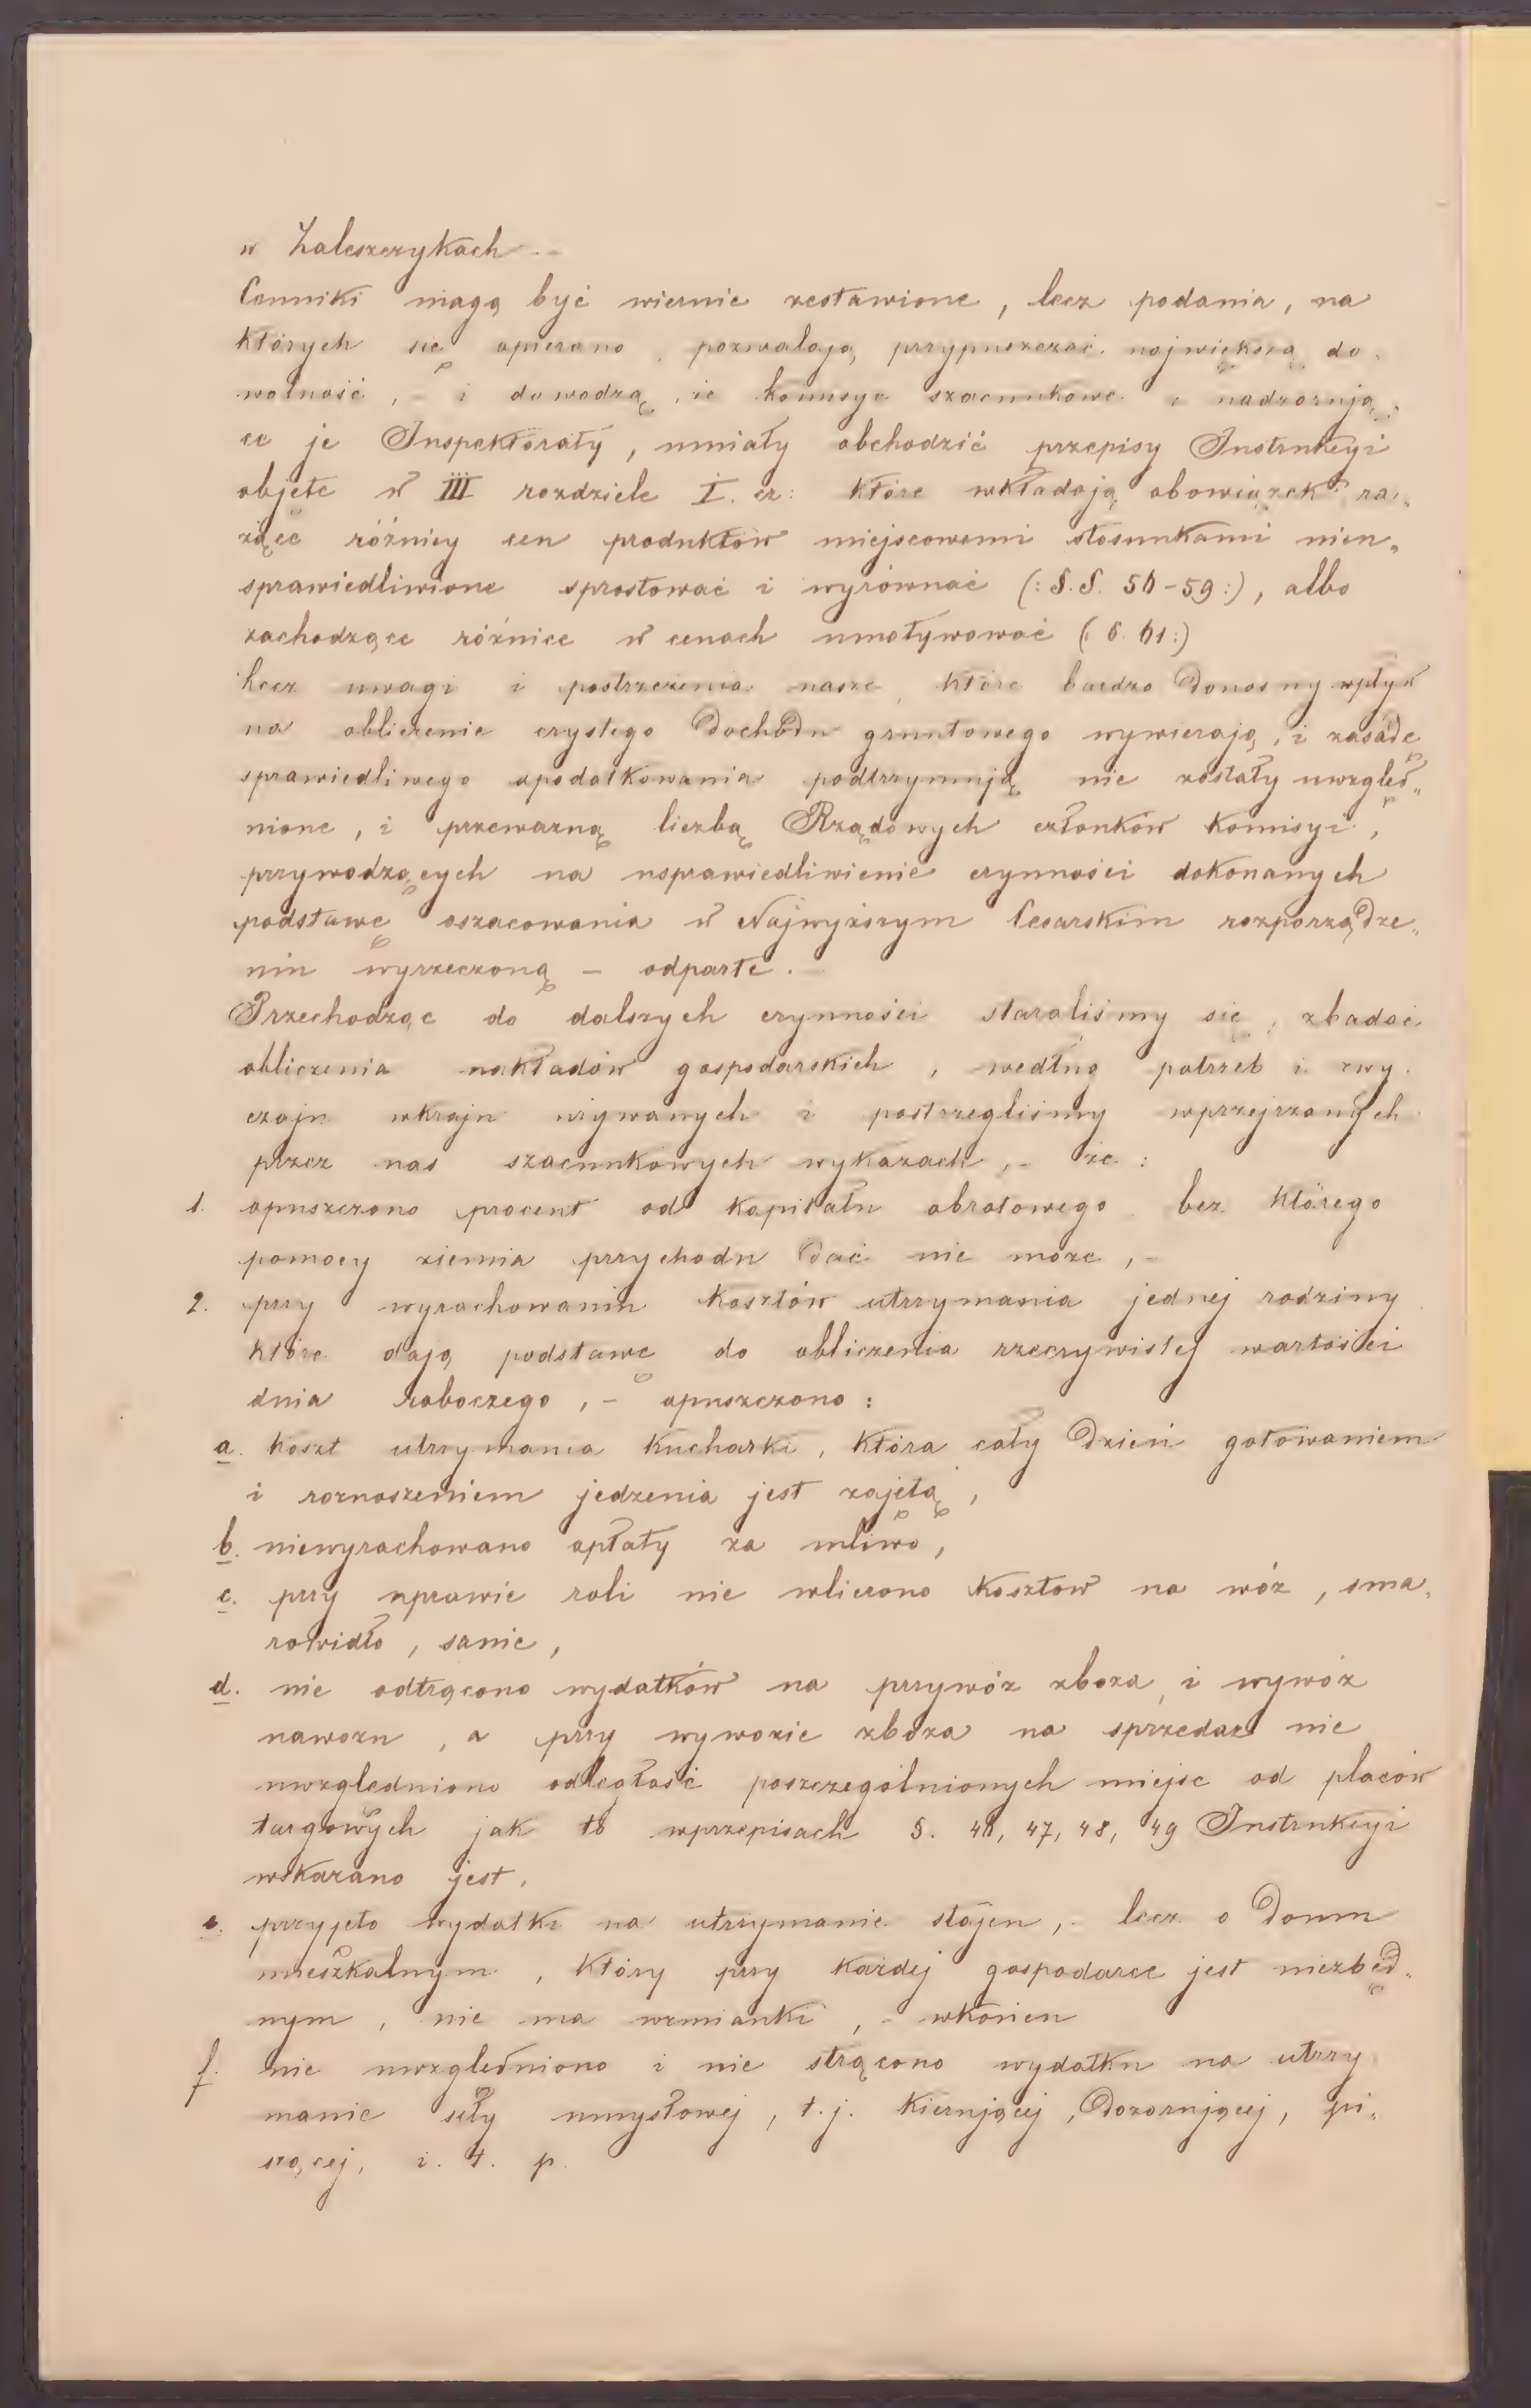 w Zaleszczykach. –
Cenniki mogą być wiernie zestawione, lecz podania, na
których się opierano, pozwalają przypuszczać największą do„
wolność, – i dowodzą, że komisye szacunkowe i nadzorują„
ce je Inspektoraty, umiały obchodzić przepisy Instrukcyi
objęte w III rozdziele I. cz: które wkładają obowiązek ra„
żące różnicy cen produktów miejscowemi stosunkami nieu„
sprawiedliwione sprostować i wyrównać (: §.§. 56-59:), albo
zachodzące różnice w cenach umotywować (: §. 61:)
Lecz uwagi i postrzeżenia nasze, które bardzo donosny wpływ
na obliczenie czystego dochodu gruntowego wywierają, i zasadę
sprawiedliwego opodatkowania podtrzymują nie zostały uwzględ„
nione, i przeważną liczbą Rządowych członków Komisyi,
przywodzących na usprawiedliwienie czynności dokonanych
podstawę oszacowania w Najwyższym Cesarskim rozporządze„
niu wyrzeczoną – odparte. –
Przechodząc do dalszych czynności staraliśmy się, zbadać
obliczenia nakładów gospodarskich, według potrzeb i zwy„
czaju wkraju używanych i postrzegliśmy wprzejrzanych
przez nas szacunkowych wykazach, – że:
1. opuszczono procent od kapitału obrotowego bez którego
pomocy ziemia przychodu dać nie może, –
2. przy wyrachowaniu kosztów utrzymania jednej rodziny
które dają podstawę do obliczenia rzeczywistej wartości
dnia roboczego, – opuszczono:
a. koszt utrzymania kucharki, która cały dzień gotowaniem
i roznoszeniem jedzenia jest zajętą,
b. niewyrachowano opłaty za mliwo,
c. przy uprawie roli nie wliczono kosztów na wóz, sma„
rowidło, sanie,
d. nie odtrącono wydatków na przywóz zboża, i wywóz
nawozu, a przy wywozie zboża na sprzedaż nie
uwzględniono odległość poszczególnionych miejsc od placów
targowych jak to wprzepisach §. 46, 47, 48, 49 Instrukcyi
wskazano jest,
e. przyjęto wydatki na utrzymanie stajen, – lecz o domu
mieszkalnym, który przy każdej gospodarce jest niezbęd„
nym, nie ma wzmianki, – wkońcu
f. nie uwzględniono i nie strącono wydatku na utrzy„
manie siły umysłowej, t.j. kierującej, dozorującej, pi„
szącej, i. t. p.